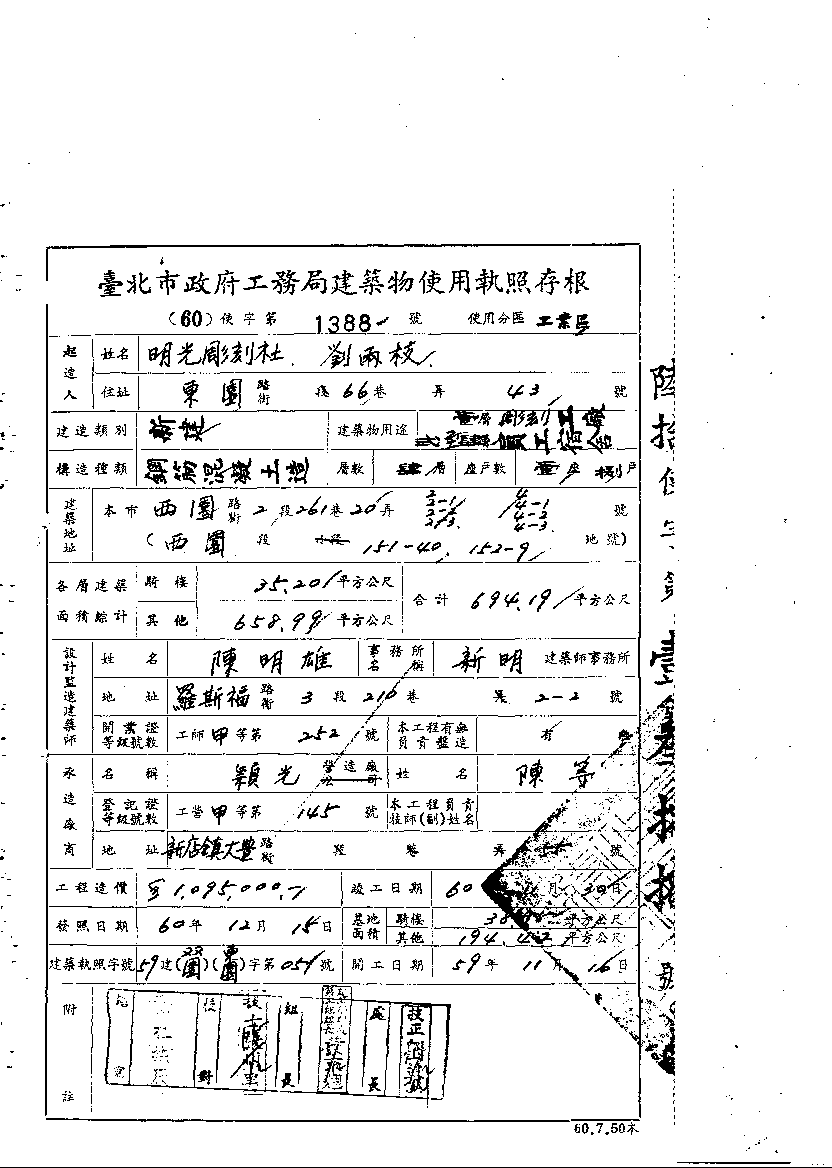 臺北市政府工務局建築物使用執照存根
(60)使字第 1388 號 使用分區 工業區
起造人 姓名 明光彫刻社. 劉兩枝.
住址 東園 路街 段 66巷 弄 43 號
建造類別 新建 建築物用途 壹層彫刻工
構造種類 鋼筋混凝土造 層數 肆層 座戶數 壹座 捌戶
建築地址 本市 西園 路街 2段261巷20弄 2 2-1 2-2 2-3 4 4-1 4-2 4-3 號
(西園 段 小段 151-40, 152-9 地號)
各層建築面積綜計 騎樓 35.20 平方公尺 合計 694.19 平方公尺
其他 658.99 平方公尺
設計監造建築師 姓名 陳明雄 事務所名稱 新明 建築師事務所
地址 羅斯福 路街 3段210巷 弄 2-2 號
開業證等級號數 工師甲等第 252 號 本工程有無負責監造 有
承造廠商 名稱 穎光 營造廠公司 姓名 陳等
登記證等級號數 工營甲等第 145 號 本工程負責技師(副)姓名
地址 新店鎮大豐 路街 段 巷 弄 號
工程造價 $1,095,000 竣工日期 60 月 30日
發照日期 60年 12月 15日 基地面積 騎樓 平方公尺
其他 194.42 平方公尺
建築執照字號 59建( 園)( 園)字第051號 開工日期 59年 11月 16日
附註
核對 組長 處長
60.7.50本
陸拾 字第壹
號